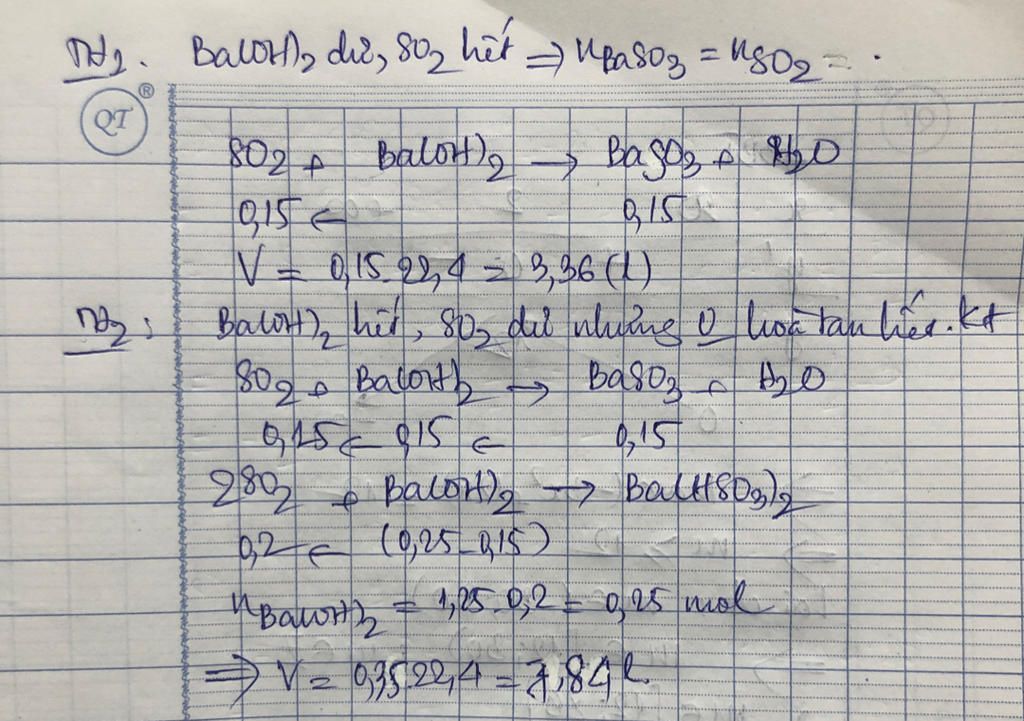 TH2. Ba(OH)2 dư, SO2 hết ⇒ nBaSO3 = nSO2 = .
QT ®
SO2 + Ba(OH)2 → BaSO3 + H2O
0,15 ← 0,15
V = 0,15.22,4 = 3,36 (l)
TH2: Ba(OH)2 hết, SO2 dư nhưng 0 hoà tan hết. KT
SO2 + Ba(OH)2 → BaSO3 + H2O
0,15 ← 0,15 ← 0,15
2SO2 + Ba(OH)2 → Ba(HSO3)2
0,2 ← (0,25-0,15)
nBa(OH)2 = 1,25.0,2 = 0,25 mol
⇒ V = 0,35.22,4 = 7,84 l